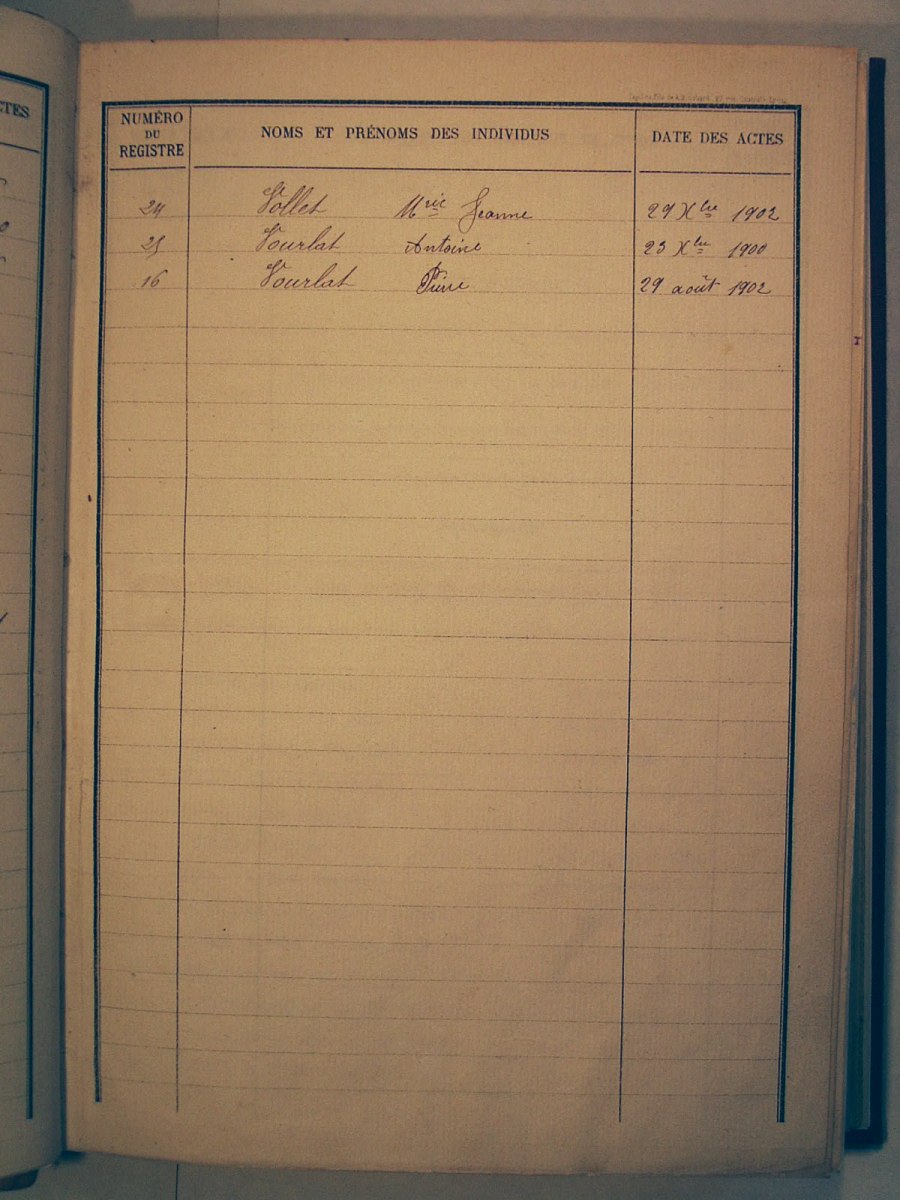 NUMÉRO
DU
REGISTRE
NOMS ET PRÉNOMS DES INDIVIDUS
DATE DES ACTES
24 Vollet Mrie Jeanne 29 Xbre 1902
25 Vourlat Antoine 23 Xbre 1900
16 Vourlat Pierre 29 août 1902
CTES